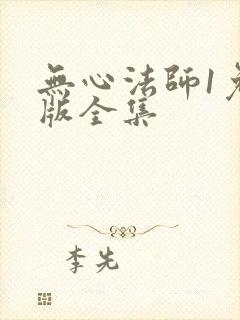 無心法師1免
版全集
李先